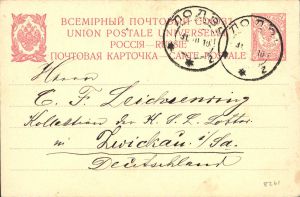 ВСЕМІРНЫЙ ПОЧТОВЫЙ СОЮЗЪ
UNION POSTALE UNIVERSELLE
РОССІЯ RUSSIE
ПОЧТОВАЯ КАРТОЧКА CARTE POSTALE
ЛОДЗЬ
ЛОДЗЬ
2
2
Herrn
C. F. Leichsenring
Kollektion der K. S. Lotter.
in Zwickau i/Sa.
Deutschland
8261